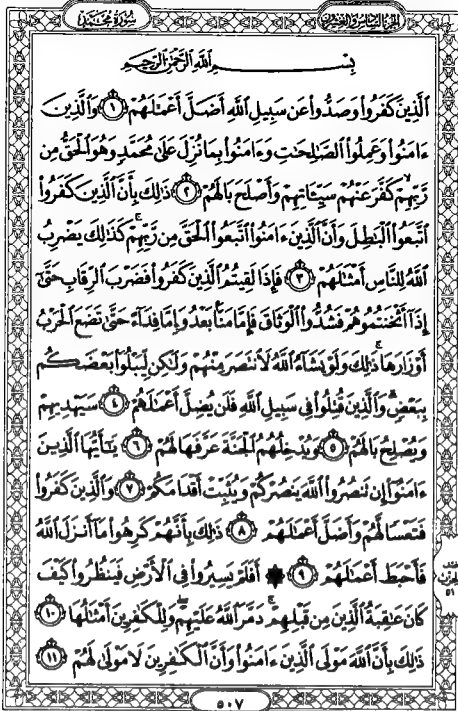 الجزء السادس والعشرون سورة محمد
بِسْمِ اللَّهِ الرَّحْمَٰنِ الرَّحِيمِ
الَّذِينَ كَفَرُوا وَصَدُّوا عَن سَبِيلِ اللَّهِ أَضَلَّ أَعْمَٰلَهُمْ ١ وَالَّذِينَ
ءَامَنُوا وَعَمِلُوا الصَّٰلِحَٰتِ وَءَامَنُوا بِمَا نُزِّلَ عَلَىٰ مُحَمَّدٍ وَهُوَ الْحَقُّ مِن
رَّبِّهِمْ كَفَّرَ عَنْهُمْ سَيِّـَٔاتِهِمْ وَأَصْلَحَ بَالَهُمْ ٢ ذَٰلِكَ بِأَنَّ الَّذِينَ كَفَرُوا
اتَّبَعُوا الْبَٰطِلَ وَأَنَّ الَّذِينَ ءَامَنُوا اتَّبَعُوا الْحَقَّ مِن رَّبِّهِمْ كَذَٰلِكَ يَضْرِبُ
اللَّهُ لِلنَّاسِ أَمْثَٰلَهُمْ ٣ فَإِذَا لَقِيتُمُ الَّذِينَ كَفَرُوا فَضَرْبَ الرِّقَابِ حَتَّىٰ
إِذَا أَثْخَنتُمُوهُمْ فَشُدُّوا الْوَثَاقَ فَإِمَّا مَنًّا بَعْدُ وَإِمَّا فِدَاءً حَتَّىٰ تَضَعَ الْحَرْبُ
أَوْزَارَهَا ذَٰلِكَ وَلَوْ يَشَاءُ اللَّهُ لَانتَصَرَ مِنْهُمْ وَلَٰكِن لِّيَبْلُوَا بَعْضَكُم
بِبَعْضٍ وَالَّذِينَ قُتِلُوا فِي سَبِيلِ اللَّهِ فَلَن يُضِلَّ أَعْمَٰلَهُمْ ٤ سَيَهْدِيهِمْ
وَيُصْلِحُ بَالَهُمْ ٥ وَيُدْخِلُهُمُ الْجَنَّةَ عَرَّفَهَا لَهُمْ ٦ يَٰٓأَيُّهَا الَّذِينَ
ءَامَنُوا إِن تَنصُرُوا اللَّهَ يَنصُرْكُمْ وَيُثَبِّتْ أَقْدَامَكُمْ ٧ وَالَّذِينَ كَفَرُوا
فَتَعْسًا لَّهُمْ وَأَضَلَّ أَعْمَٰلَهُمْ ٨ ذَٰلِكَ بِأَنَّهُمْ كَرِهُوا مَا أَنزَلَ اللَّهُ
فَأَحْبَطَ أَعْمَٰلَهُمْ ٩ أَفَلَمْ يَسِيرُوا فِي الْأَرْضِ فَيَنظُرُوا كَيْفَ
كَانَ عَٰقِبَةُ الَّذِينَ مِن قَبْلِهِمْ دَمَّرَ اللَّهُ عَلَيْهِمْ وَلِلْكَٰفِرِينَ أَمْثَٰلُهَا ١٠
ذَٰلِكَ بِأَنَّ اللَّهَ مَوْلَى الَّذِينَ ءَامَنُوا وَأَنَّ الْكَٰفِرِينَ لَا مَوْلَىٰ لَهُمْ ١١
الحزب
٥١
٥٠٧